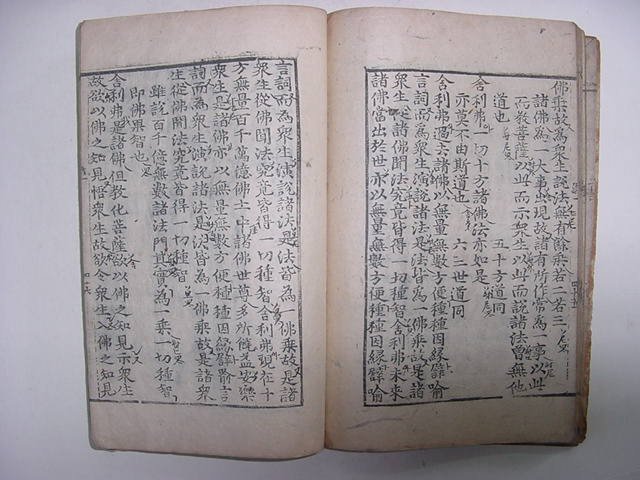 佛乘故為衆生說法無有餘乘若二若三
諸佛為一大事出現故諸有所作常為一事以此
而教菩薩以此而示衆生以此而說諸法曾無他
道也 五十方道同
舍利弗一切十方諸佛法亦如是
亦莫不由斯道也 六三世道同
舍利弗過去諸佛以無量無數方便種種因緣譬喻
言詞而為衆生演說諸法是法皆為一佛乘故是諸
衆生從諸佛聞法究竟皆得一切種智舍利弗未來
諸佛當出於世亦以無量無數方便種種因緣譬喻
言詞而為衆生演說諸法是法皆為一佛乘故是諸
衆生從佛聞法究竟皆得一切種智舍利弗現在十
方無量百千萬億佛土中諸佛世尊多所饒益安樂
衆生是諸佛亦以無量無數方便種種因緣譬喻言
詞而為衆生演說諸法是法皆為一佛乘故是諸衆
生從佛聞法究竟皆得一切種智
雖說百千億無數諸法門其實為一乘一切種智
即佛果智也
舍利弗是諸佛但教化菩薩欲以佛之知見示衆生
故欲以佛之知見悟衆生故欲令衆生入佛之知見